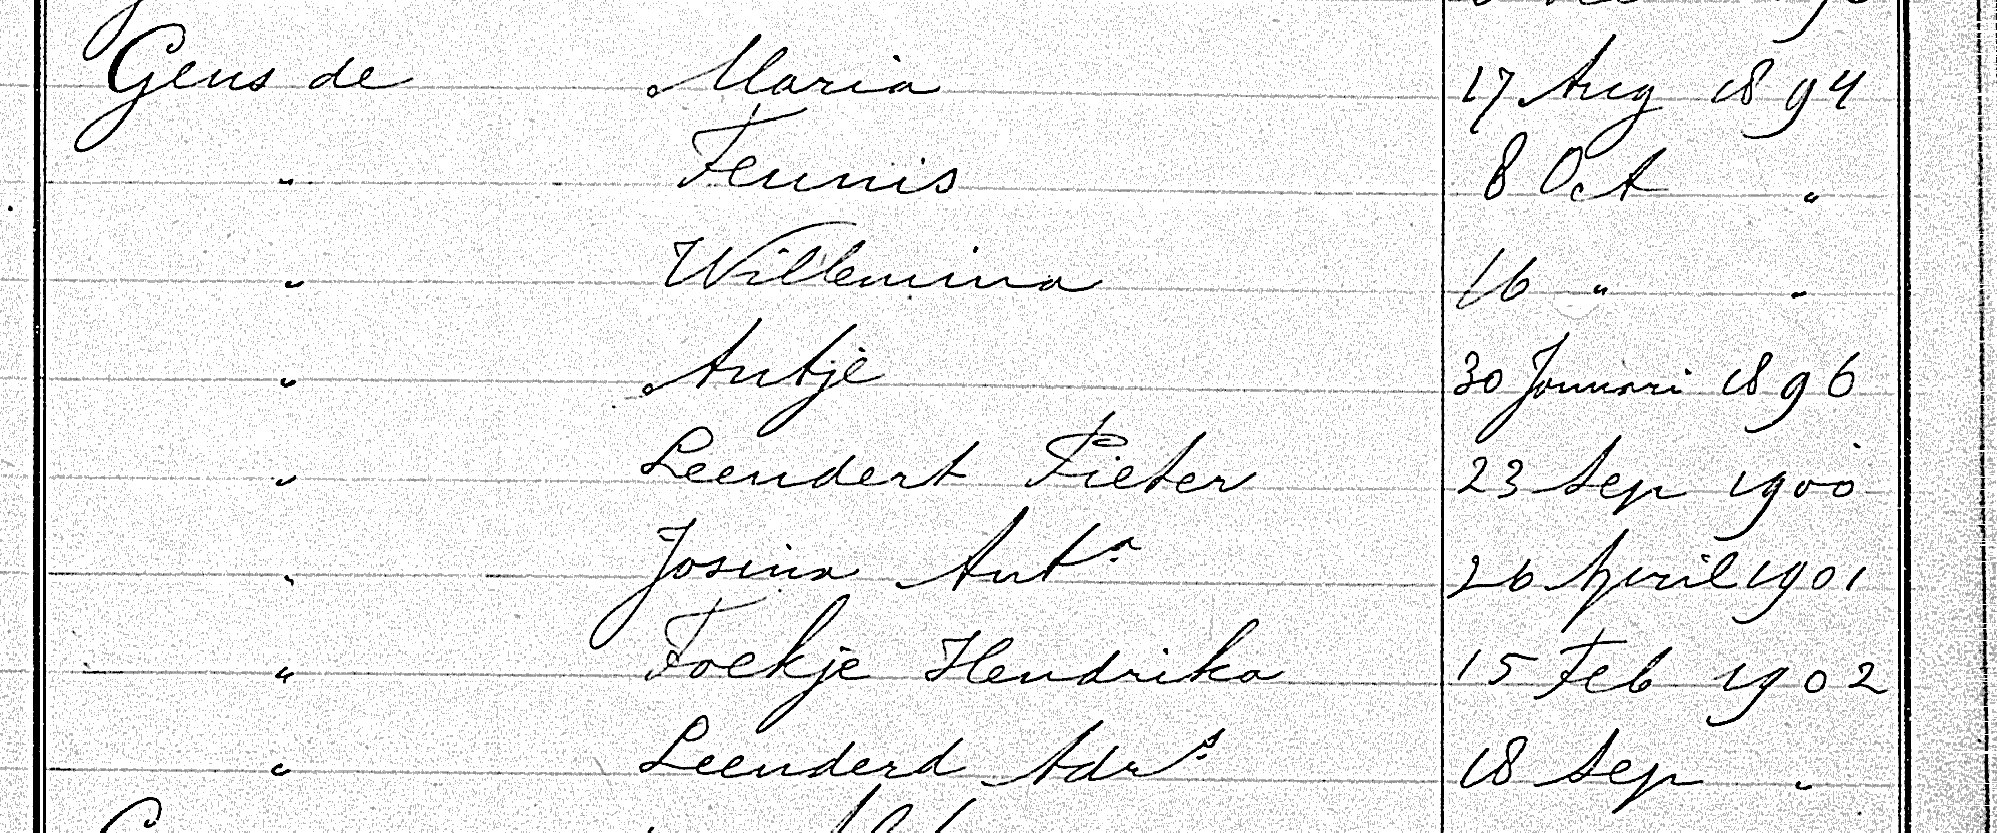 Geus de Maria 17 Aug 1894
" Teunis 8 Oct "
" Willemina 16 " "
" Antje 30 Januari 1896
" Leendert Pieter 23 Sep 1900
" Josina Antᵃ. 26 April 1901
" Fockje Hendrika 15 Feb 1902
" Leenderd Adrˢ. 18 Sep "